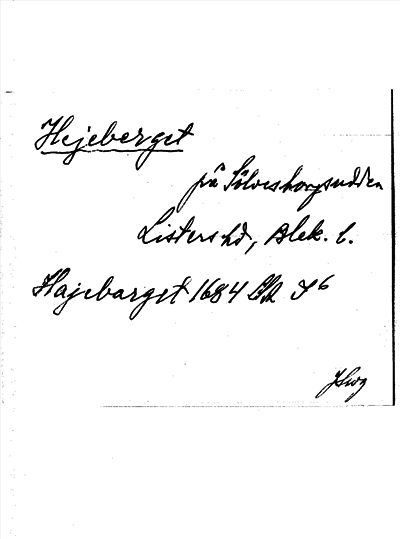 Hejeberget
på Sölvesborgsudden
Listers hd, Blek. l.
Hajebarget 1684